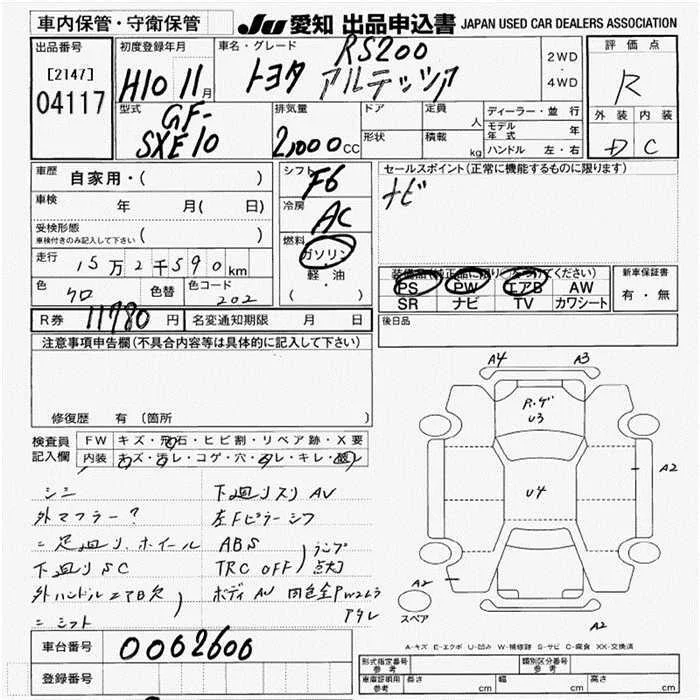 車内保管・守衛保管 JU 愛知 出品申込書 JAPAN USED CAR DEALERS ASSOCIATION
出品番号 初度登録年月 車名・グレード 評価点
[2147] H10年 11月 トヨタ RS200 アルテッツァ 2WD・4WD R
04117
型式 排気量 ドア 定員 人 ディーラー・並行 外装 内装
GF-
SXE10 2,000CC 形状 積載 kg モデル年式 年 D C
ハンドル 左・右
車歴 自家用・( ) シフト F6 セールスポイント(正常に機能するものに限ります)
車検 年 月( 日) 冷房 AC ナビ
受検形態 ( )
車検付きのみ記入して下さい
燃料 ガソリン
走行 15万2千590km 軽・油
装備品(純正品に限り○をつけてください) 新車保証書
色 クロ 色替 色コード 202 ( )
PS PW エアB AW 有・無
SR ナビ TV カワシート
R券 11780円 名変通知期限 月 日 後日品
注意事項申告欄(不具合内容等は具体的に記入して下さい)
A4 A3
R・ゲ
U3
修復歴 有 〔箇所 〕
検査員記入欄 FW キズ・飛石・ヒビ割・リペア跡・X要
内装 キズ・汚レ・コゲ・穴・スレ・キレ・破レ
A2
U4
シミ 下廻リスリ AV
外マフラー? 左Fピラーシワ
〃足廻リ、ホイール ABS ランプ
下廻リSC TRC OFF 点灯
外ハンドル エアB欠 ボディAU
〃シフト
A2
スペア
A2
車台番号 0062606
A-キズ E-エクボ U-凹み W-補修跡 S-サビ C-腐食 XX-交換済
登録番号
型式指定番号 参考 類別区分番号 参考
車庫証明用 参考 長さ cm 幅 cm 高さ cm